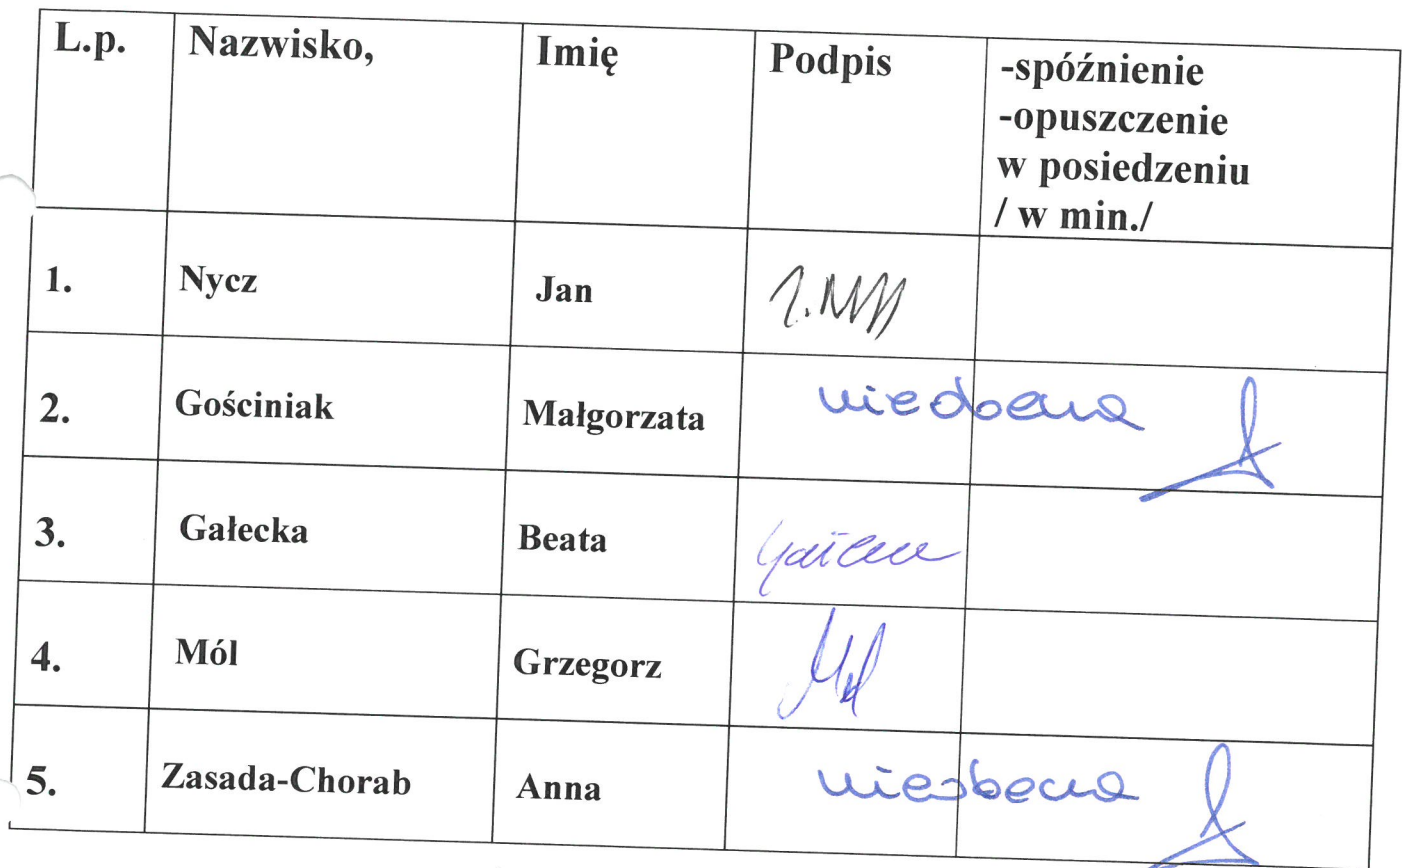 L.p. Nazwisko, Imię Podpis -spóźnienie
-opuszczenie
w posiedzeniu
/ w min./
1. Nycz Jan
2. Gościniak Małgorzata nieobecna
3. Gałecka Beata
4. Mól Grzegorz
5. Zasada-Chorab Anna nieobecna